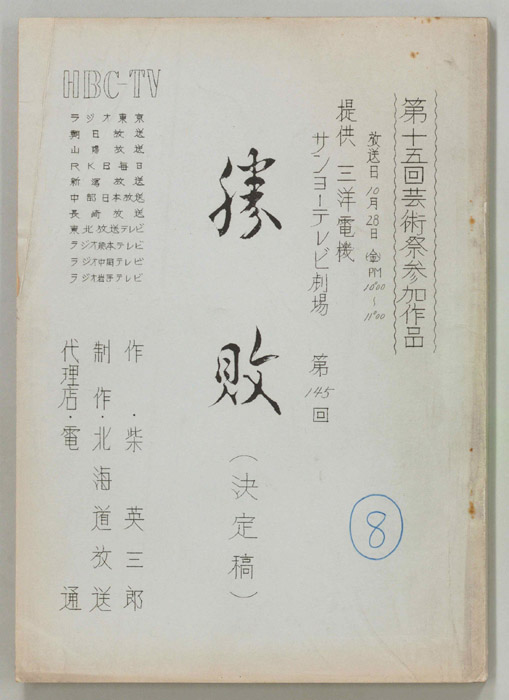 第十五回芸術祭参加作品
放送日 10月28日 ㊎ PM 10:00～11:00
提供 三洋電機
サンヨーテレビ劇場 第145回
勝敗
(決定稿)
8
HBC-TV
ラジオ東京
朝日放送
山陽放送
RKB毎日
新潟放送
中部日本放送
長崎放送
東北放送テレビ
ラジオ熊本テレビ
ラジオ中国テレビ
ラジオ岩手テレビ
作・柴英三郎
制作・北海道放送
代理店・電通